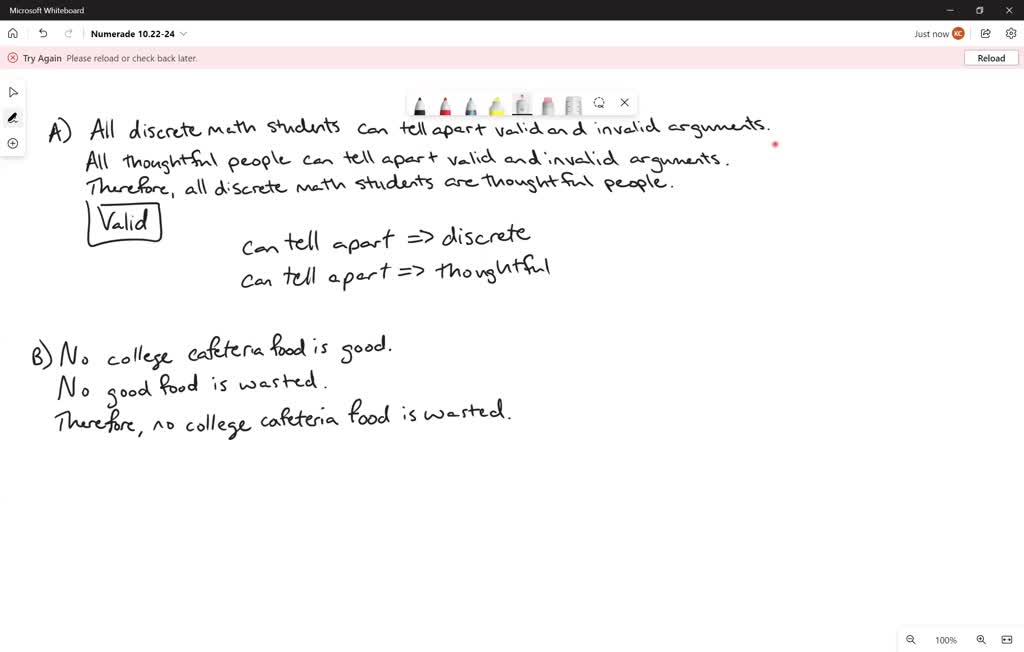 Microsoft Whiteboard
Numerade 10.22-24
Just now KC
Try Again Please reload or check back later.
Reload
A) All discrete math students can tell apart valid and invalid arguments.
All thoughtful people can tell apart valid and invalid arguments.
Therefore, all discrete math students are thoughtful people.
Valid
can tell apart => discrete
can tell apart => thoughtful
B) No college cafeteria food is good.
No good food is wasted.
Therefore, no college cafeteria food is wasted.
100%